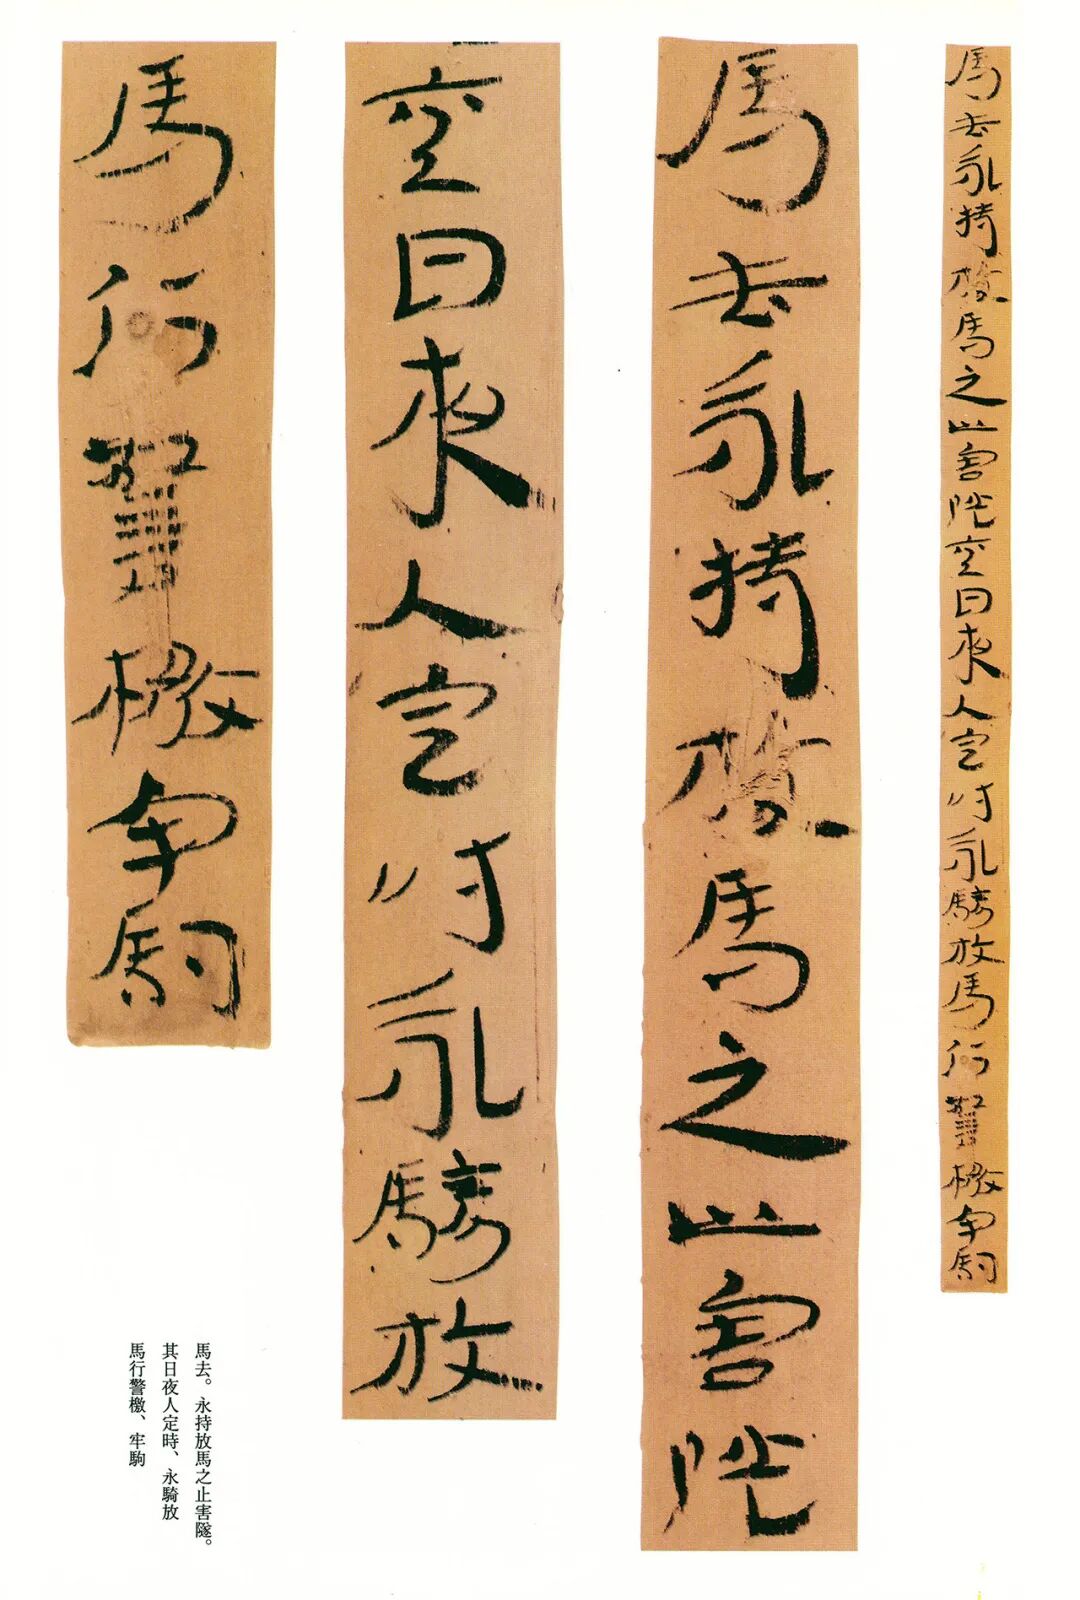 馬去永持放馬之止害隧其日夜人定時永騎放馬行警檄牢駒
馬去永持放馬之止害隧
其日夜人定時永騎放
馬行警檄牢駒
馬去。永持放馬之止害隧。
其日夜人定時、永騎放
馬行警檄、牢駒